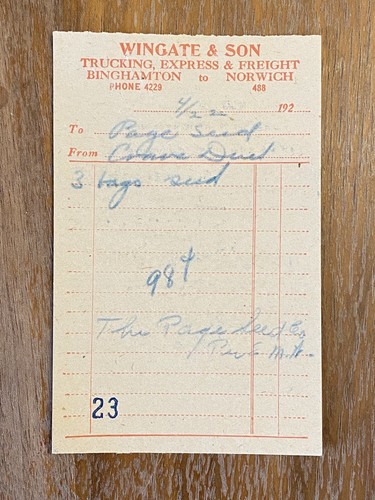 WINGATE & SON
TRUCKING, EXPRESS & FREIGHT
BINGHAMTON to NORWICH
PHONE 4229 488
4/22 192
To Page Seed
From
3 bags seed
984
The Page Seed Co.
M.A.
23